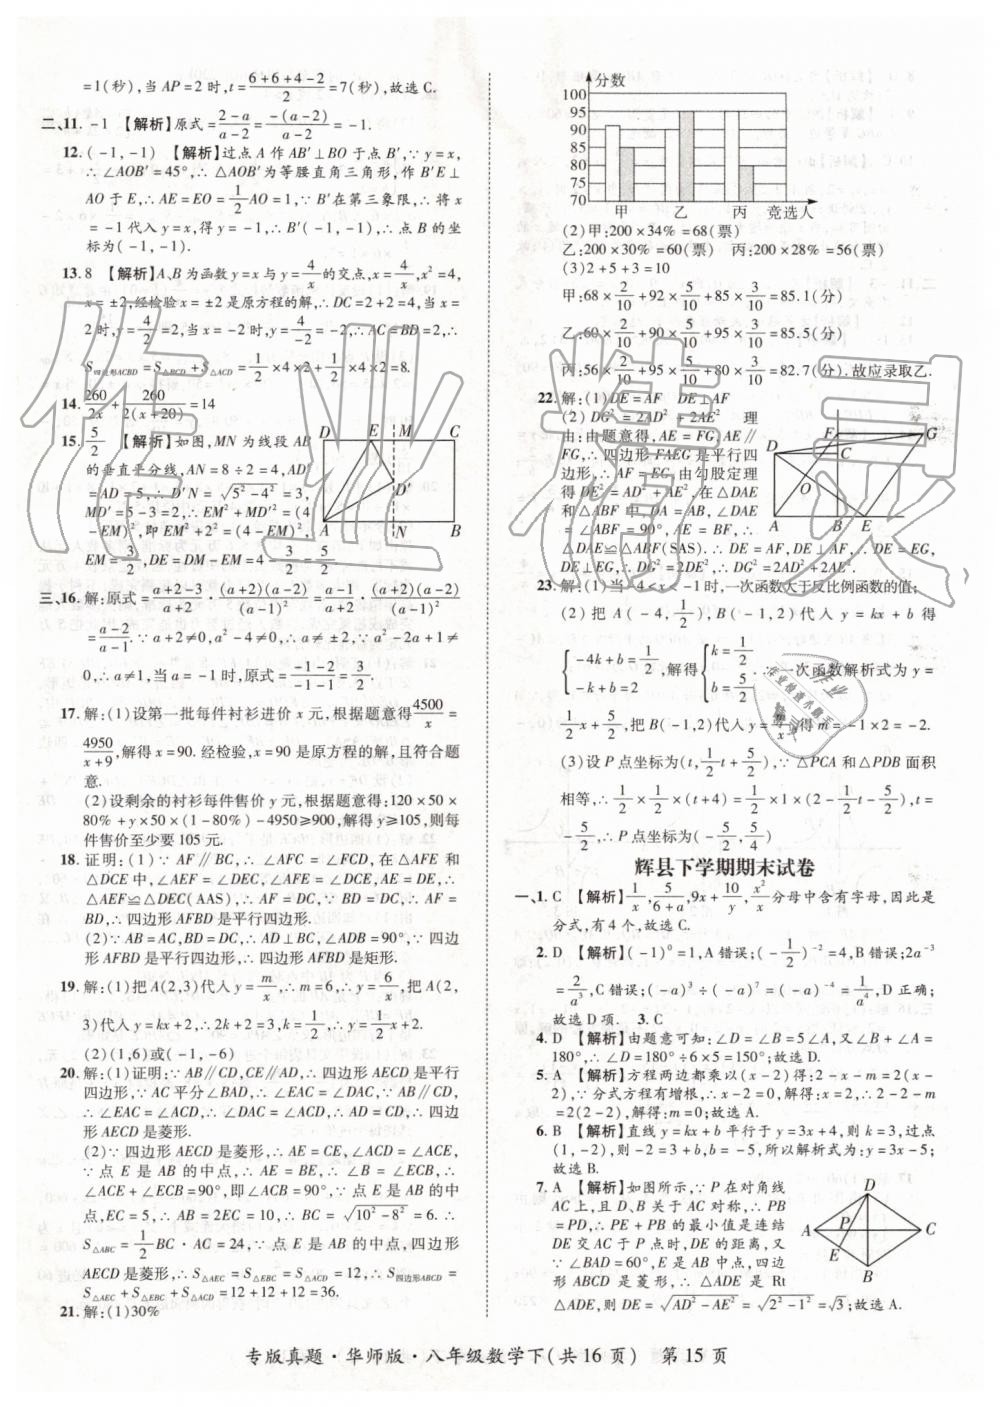 =1(秒),当 AP=2 时,t=(6+6+4-2)/2=7(秒),故选 C.
二、11. -1 【解析】原式=(2-a)/(a-2)=-(a-2)/(a-2)=-1.
12. (-1,-1) 【解析】过点 A 作 AB′⊥BO 于点 B′,∵y=x,
∴∠AOB′=45°,∴△AOB′为等腰直角三角形,作 B′E⊥
AO 于 E,∴AE=EO=1/2AO=1,∵B′在第三象限,∴将 x
=-1代入 y=x,得 y=-1,∴B′(-1,-1),∴点 B 的坐
标为(-1,-1).
13. 8 【解析】A、B 为函数 y=x 与 y=4/x的交点,x=4/x,x²=4,
x=±2,经检验 x=±2是原方程的解,∴DC=2+2=4,当 x=
2时,y=4/2=2,当 x=-2时,y=4/-2=-2,∴AC=BD=2,∴
S四边形ACBD=S△BCD+S△ACD=1/2×4×2+1/2×4×2=8.
14. 260/2x+260/2(x+20)=14
15. 5/2 【解析】如图,MN 为线段 AB
的垂直平分线,AN=8÷2=4,AD′
=AD=5,∴D′N=√(5²-4²)=3,
MD′=5-3=2,∴EM²+MD′²=(4
-EM)²,即 EM²+2²=(4-EM)²,
EM=3/2,DE=DM-EM=4-3/2=5/2.
D E M C
D′
A N B
三、16. 解:原式=(a+2-3)/(a+2)·(a+2)(a-2)/(a-1)²=(a-1)/(a+2)·(a+2)(a-2)/(a-1)²
=(a-2)/(a-1).∵a+2≠0,a²-4≠0,∴a≠±2,∵a²-2a+1≠
0,∴a≠1,当 a=-1时,原式=(-1-2)/(-1-1)=3/2.
17. 解:(1)设第一批每件衬衫进价 x 元,根据题意得4500/x=
4950/(x+9),解得 x=90. 经检验,x=90 是原方程的解,且符合题
意.
(2)设剩余的衬衫每件售价 y 元,根据题意得:120×50×
80%+y×50×(1-80%)-4950≥900,解得 y≥105,则每
件售价至少要 105 元.
18. 证明:(1)∵AF∥BC,∴∠AFC=∠FCD,在△AFE 和
△DCE 中,∠AEF=∠DEC,∠AFE=∠DCE,AE=DE,∴
△AEF≌△DEC(AAS),∴AF=DC,∵BD=DC,∴AF=
BD,∴四边形 AFBD 是平行四边形.
(2)∵AB=AC,BD=DC,∴AD⊥BC,∠ADB=90°,∵四边
形 AFBD 是平行四边形,∴四边形 AFBD 是矩形.
19. 解:(1)把 A(2,3)代入 y=m/x,∴m=6,∴y=6/x,把 A(2,
3)代入 y=kx+2,∴2k+2=3,k=1/2,∴y=1/2x+2.
(2)(1,6)或(-1,-6)
20. 解:(1)证明:∵AB∥CD,CE∥AD,∴四边形 AECD 是平行
四边形,∵AC 平分∠BAD,∴∠EAC=∠DAC,∵AB∥CD,
∴∠EAC=∠ACD,∴∠DAC=∠ACD,∴AD=CD,∴四边
形 AECD 是菱形.
(2)∵四边形 AECD 是菱形,∴AE=CE,∴∠EAC=∠ACE,
∵点 E 是 AB 的中点,∴AE=BE,∴∠B=∠ECB,∴
∠ACE+∠ECB=90°,即∠ACB=90°,∵点 E 是 AB 的中
点,EC=5,∴AB=2EC=10,∴BC=√(10²-8²)=6.∴
S△ABC=1/2BC·AC=24,∵点 E 是 AB 的中点,四边形
AECD 是菱形,∴S△AEC=S△EBC=S△ACD=12,∴S四边形ABCD=
S△AEC+S△EBC+S△ACD=12+12+12=36.
21. 解:(1)30%
分数
100
95
90
85
80
75
70
甲 乙 丙 竞选人
(2)甲:200×34%=68(票)
乙:200×30%=60(票) 丙:200×28%=56(票)
(3)2+5+3=10
甲:68×2/10+92×5/10+85×3/10=85.1(分)
乙:60×2/10+90×5/10+95×3/10=85.5(分)
丙:56×2/10+95×5/10+80×3/10=82.7(分).故应录取乙.
22. 解:(1)DE=AF DE⊥AF
(2)DG²=2AD²+2AE² 理
由:由题意得,AE=FG,AE∥
FG,∴四边形 FAEG 是平行四
边形,∴AF=EG.由勾股定理
得 DE²=AD²+AE²,在△DAE
和△ABF 中,DA=AB,∠DAE
=∠ABF=90°,AE=BF,∴
△DAE≌△ABF(SAS).∴DE=AF,DE⊥AF,∴DE=EG,
DE⊥EG,∴DG²=2DE²,∴DG²=2AD²+2AE².
F G
D C
O
A B E
23. 解:(1)当-4<x<-1时,一次函数大于反比例函数的值;
(2)把 A(-4,1/2),B(-1,2)代入 y=kx+b 得
{-4k+b=1/2, -k+b=2 解得{k=1/2, b=5/2 ∴一次函数解析式为 y=
1/2x+5/2,把 B(-1,2)代入 y=m/x得 m=-1×2=-2.
(3)设 P 点坐标为(t,1/2t+5/2),∵△PCA 和△PDB 面积
相等,∴1/2×1/2×(t+4)=1/2×1×(2-1/2t-5/2),t=
-5/2,∴P 点坐标为(-5/2,5/4)
辉县下学期期末试卷
一、1. C 【解析】1/x,5/(6+a),9x+10/y,x²/x分母中含有字母,因此是
分式,有 4 个,故选 C.
2. D 【解析】(-1)⁰=1,A 错误;(-1/2)⁻²=4,B 错误;2a⁻³
=2/a³,C 错误;(-a)³÷(-a)⁷=(-a)⁻⁴=1/a⁴,D 正确;
故选 D 项. 3. C
4. D 【解析】由题意可知:∠D=∠B=5∠A,又∠B+∠A=
180°,∴∠D=180°÷6×5=150°;故选 D.
5. A 【解析】方程两边都乘以(x-2)得:2-x-m=2(x-
2),∵分式方程有增根,∴x-2=0,解得 x=2,∴2-2-m
=2(2-2),解得:m=0;故选 A.
6. B 【解析】直线 y=kx+b 平行于 y=3x+4,则 k=3,过点
(1,-2),则-2=3+b,b=-5,所以解析式为 y=3x-5;
故选 B.
7. A 【解析】如图所示,∵P 在对角线
AC 上,且 D、B 关于 AC 对称,∴PB
=PD,∴PE+PB 的最小值是连结
DE 交 AC 于 P 点时,DE 的距离,又
∵∠BAD=60°,E 是 AB 中点,四边
形 ABCD 是菱形,∴△ADE 是 Rt
△ADE,则 DE=√(AD²-AE²)=√(2²-1²)=√3;故选 A.
D
P
A C
E
B
专版真题·华师版·八年级数学下(共 16 页) 第 15 页
作业精灵